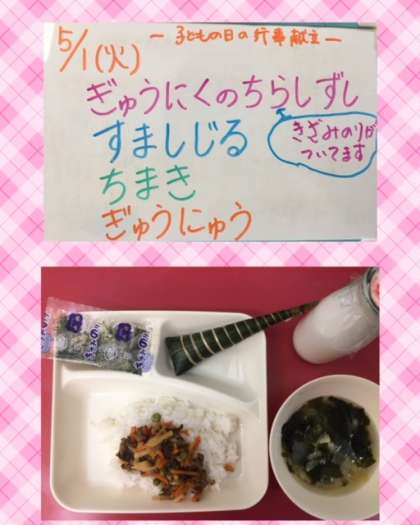 5/1(火)
ー子どもの日の行事献立ー
ぎゅうにくのちらしずし
きざみのりが
ついてます
すましじる
ちまき
ぎゅうにゅう